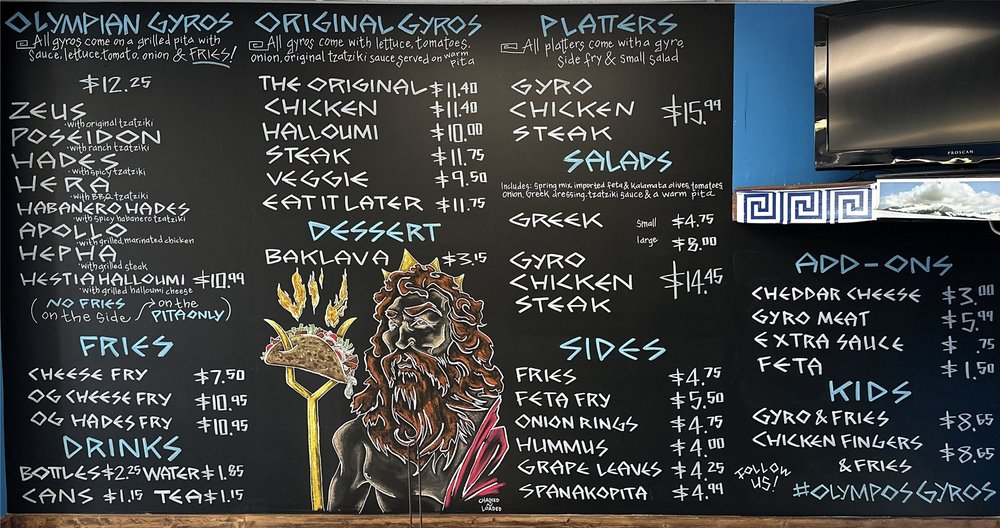 OLYMPIAN GYROS
All gyros come on a grilled pita with
sauce, lettuce, tomato, onion & FRIES!
$12.25
ZEUS
·with original tzatziki
POSEIDON
·with ranch tzatziki
HADES
·with spicy tzatziki
HERA
·with BBQ tzatziki
HABANERO HADES
·with spicy habanero tzatziki
APOLLO
·with grilled marinated chicken
HEPHA
·with grilled steak
HESTIA HALLOUMI $10.99
·with grilled halloumi cheese
(NO FRIES / on the
on the side PITA ONLY)
FRIES
CHEESE FRY $7.50
OG CHEESE FRY $10.95
OG HADES FRY $10.95
DRINKS
BOTTLES $2.25 WATER $1.85
CANS $1.15 TEA $1.15
ORIGINAL GYROS
All gyros come with lettuce, tomatoes,
onion, original tzatziki sauce served on warm
pita
THE ORIGINAL $11.40
CHICKEN $11.40
HALLOUMI $10.00
STEAK $11.75
VEGGIE $9.50
EAT IT LATER $11.75
DESSERT
BAKLAVA $3.15
CHALKED
LOADED
PLATTERS
All platters come with a gyro
side fry & small salad
GYRO
CHICKEN $15.99
STEAK
SALADS
Includes: spring mix, imported feta & kalamata olives, tomatoes
onion, Greek dressing, tzatziki sauce & a warm pita
GREEK small $4.75
large $8.00
GYRO
CHICKEN $14.45
STEAK
SIDES
FRIES $4.75
FETA FRY $5.50
ONION RINGS $4.75
HUMMUS $4.00
GRAPE LEAVES $4.25
SPANAKOPITA $4.99
PROSCAN
ADD-ONS
CHEDDAR CHEESE $3.00
GYRO MEAT $5.99
EXTRA SAUCE $.75
FETA $1.50
KIDS
GYRO & FRIES $8.65
CHICKEN FINGERS
& FRIES $8.65
FOLLOW
US!
#OLYMPOSGYROS